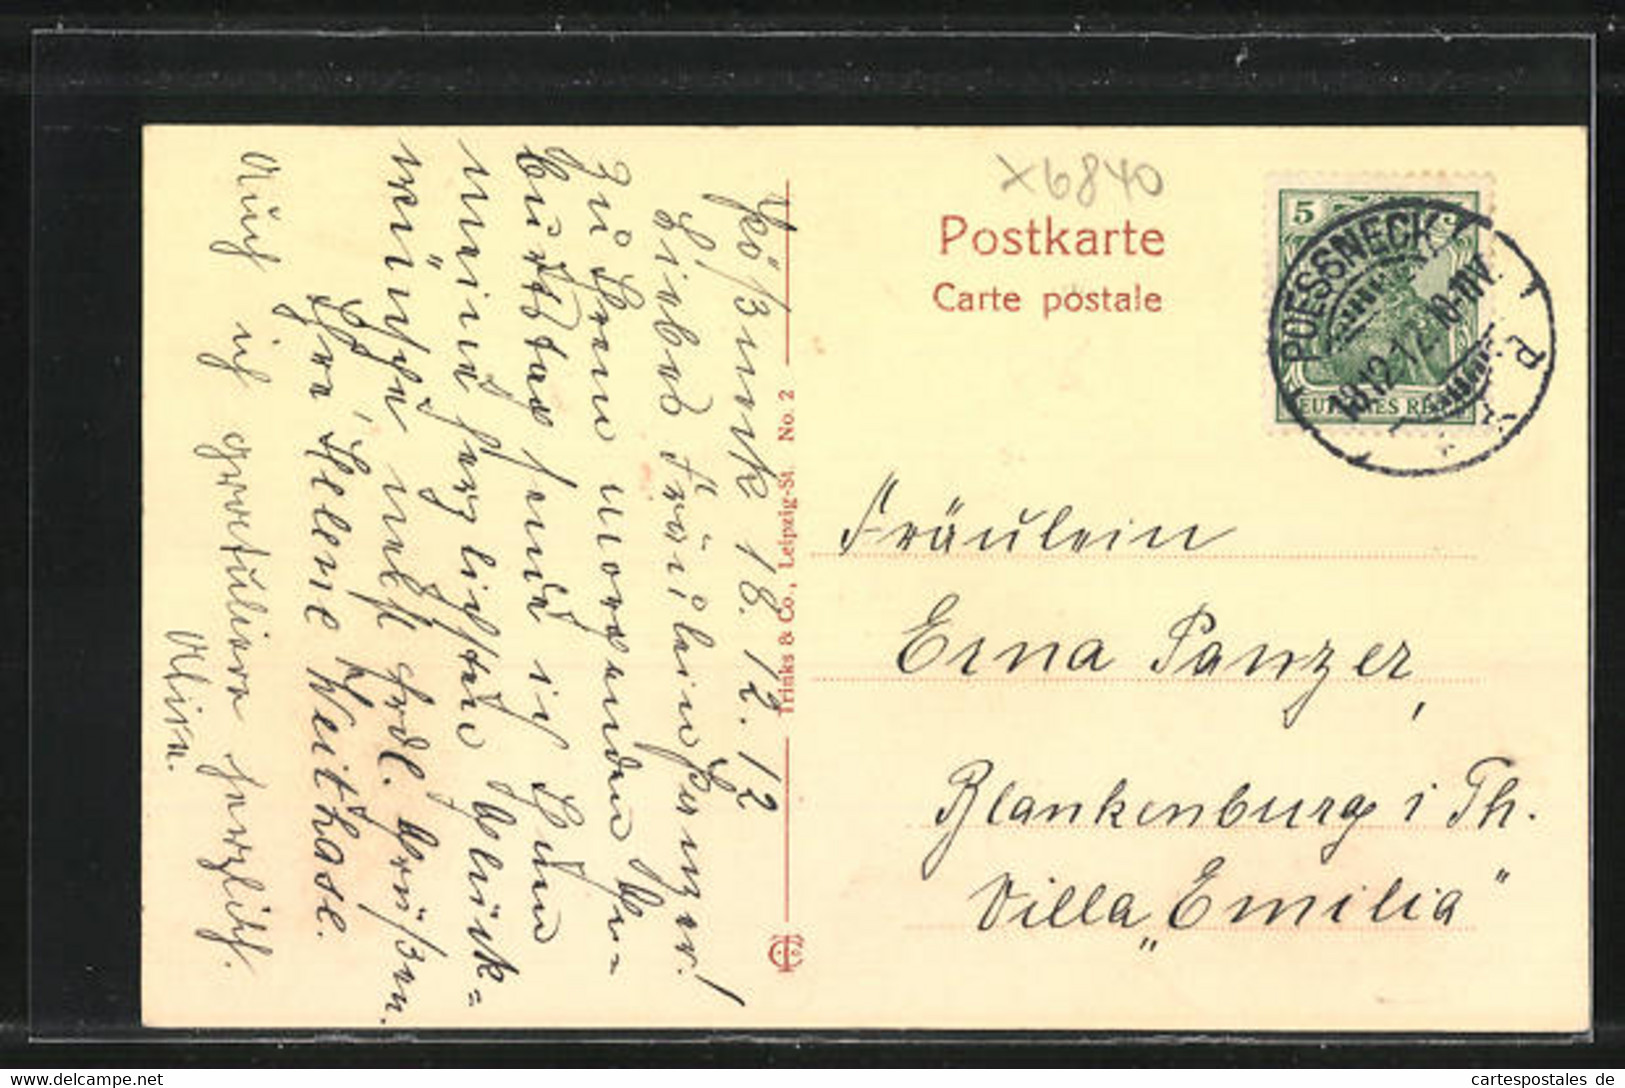 x6840
Postkarte
Carte postale
5
POESSNECK
18.12.12. 10-11V.
DEUTSCHES REICH
Fräulein
Erna Panzer,
Blankenburg i Th.
Villa „Emilia“
Trinks & Co., Leipzig-St. No. 2
Pößneck 18. 12. 12
Liebes Fräulein Panzer!
Zu Ihrem morgenden Ge=
burtstag sende ich Ihnen
meine herzlichsten Glück=
wünsche nebst frdl. Grüßen.
Ihre Hellene Weithase.
Auch ich gratuliere herzlich.
cartespostales de